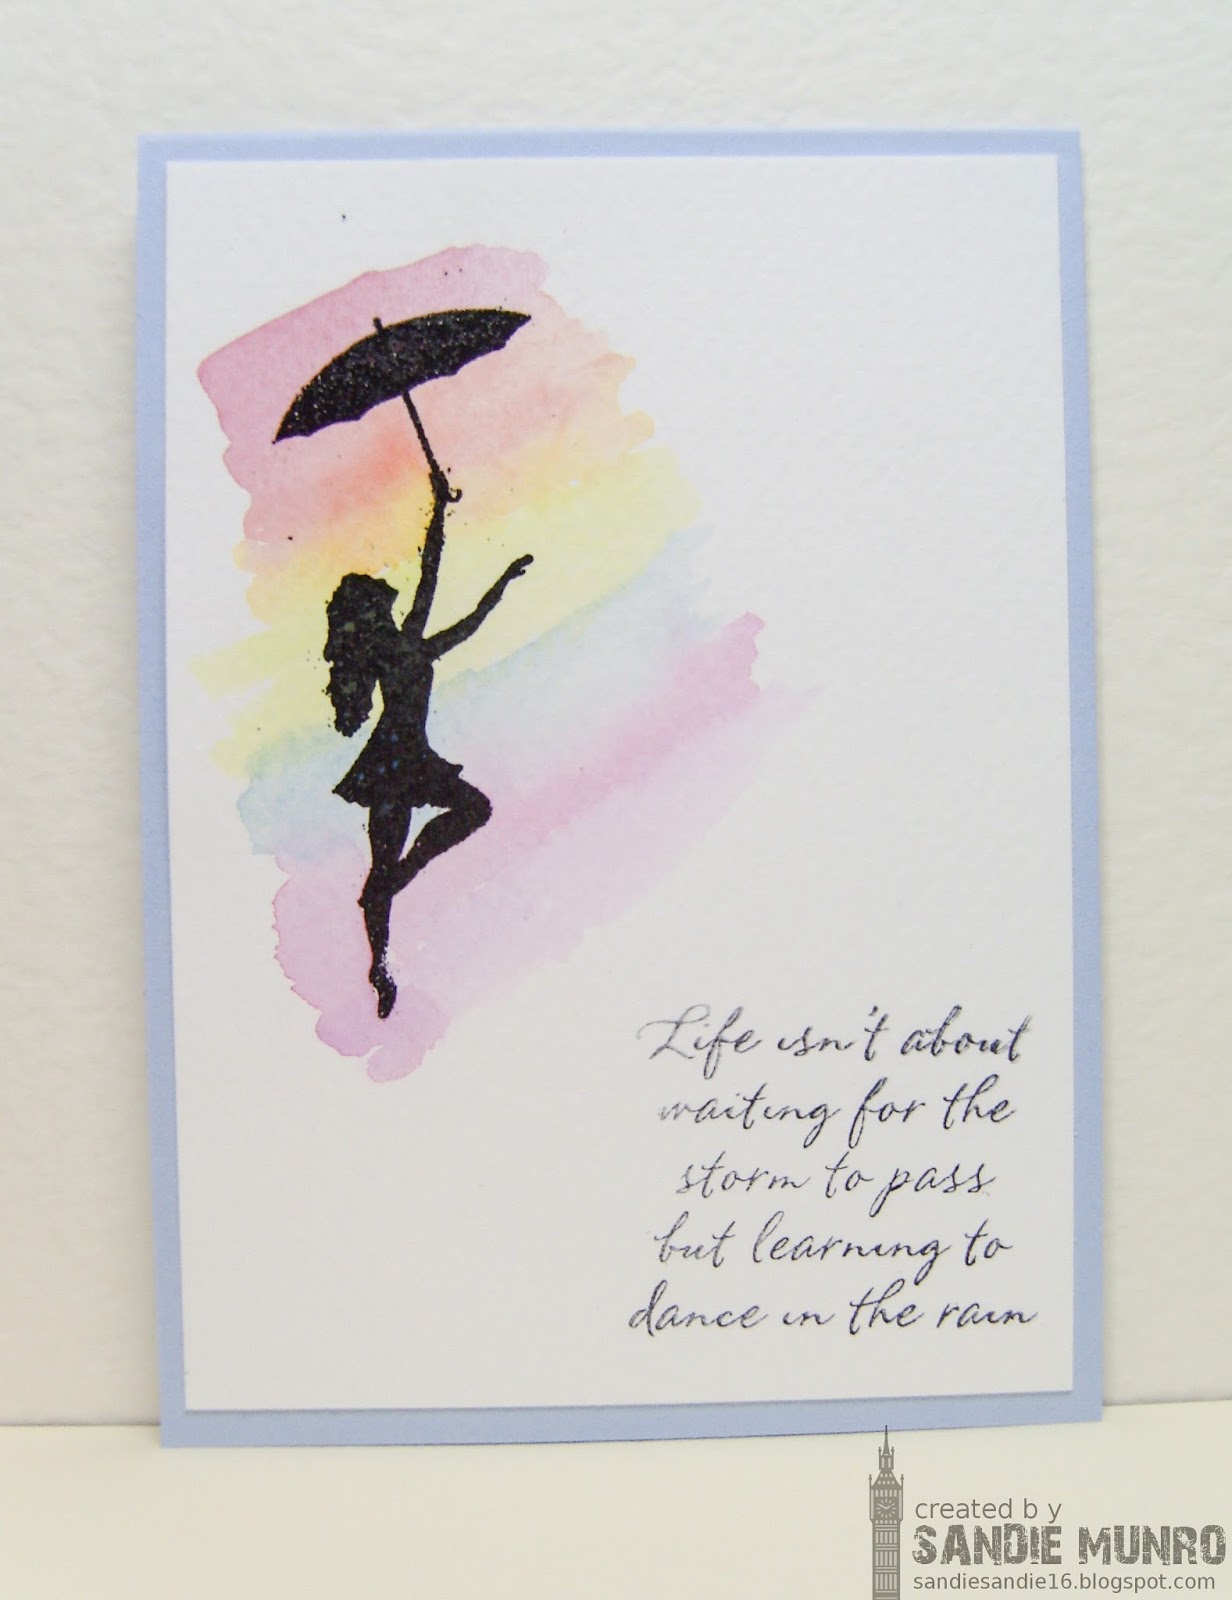 Life isn't about
waiting for the
storm to pass
but learning to
dance in the rain
created b y
SANDIE MUNRO
sandiesandie16.blogspot.com